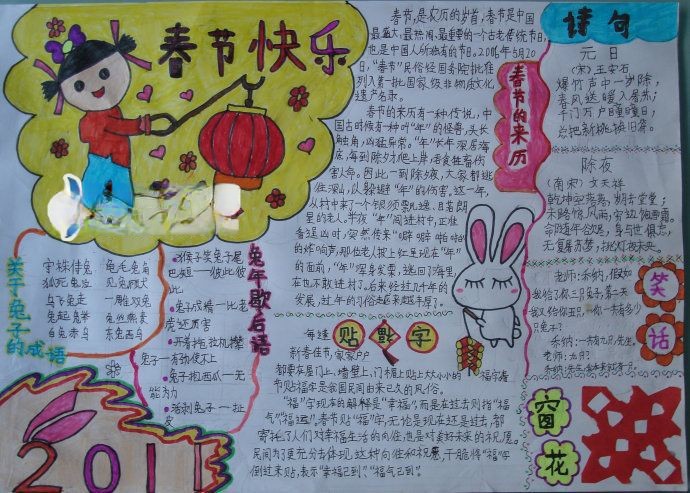 春节快乐
春节,是农历的岁首,春节是中国
最盛大,最热闹,最重要的一个古老传统节日,
也是中国人所独有的节日。2006年5月20
日,“春节”民俗经国务院批准
列入第一批国家级非物质文化
遗产名录。
春节的来历有一种传说,中
国古时候有一种叫“年”的怪兽,头长
触角,凶猛异常。“年”长年深居海
底,每到除夕爬上岸,吞食牲畜伤
害人命。因此一到除夕,大家都逃
往深山,以躲避“年”的伤害,这一年,
从村中来了一个银须飘逸,目若朗
星的老人。半夜“年”闯进村中,正准
备逞凶时,突然传来“噼噼啪啪”
的炸响声,那位老人披上红
的面前,“年”浑身发栗,逃回了海里,
在也不敢进村了。后来经过几千年的
发展,过年的习俗越来越丰厚了。
春节的来历
诗句
元日
(宋)王安石
爆竹声中一岁除,
春风送暖入屠苏;
千门万户曈曈日,
总把新桃换旧符。
除夜
(南宋)文天祥
乾坤空落落,岁月去堂堂;
末路惊风雨,穷边饱雪霜。
命随年欲尽,身与世俱忘;
无复屠苏梦,挑灯夜未央。
笑话
关于兔子的成语
守株待兔 龟毛兔角
狐死兔泣 见兔顾犬
乌飞兔走 一雕双兔
兔起凫举 兔丝燕麦
白兔赤乌 东兔西乌
兔年歇后语
猴子笑兔子尾
巴短——彼此彼
此
兔子成精——比老
虎还厉害
开着拖拉机撵
兔子——有劲使不上
兔子抱西瓜——无
能为力
活剥兔子——扯
皮
贴福字
每逢
新春佳节,家家户户
都要在屋门上,墙壁上,门楣上贴上大大小小的“福”字春
节贴福字是我国民间由来已久的风俗。
“福”字现在的解释是“幸福”,而在过去则指“福
气”“福运”。春节贴“福”字,无论是现在还是过去,都
寄托了人们对幸福生活的向往,也是对美好未来的祝愿。
民间为了更充分地体现这种向往和祝愿,干脆将“福”字
倒过来贴,表示“幸福已到”“福气已到”。
窗花
2011